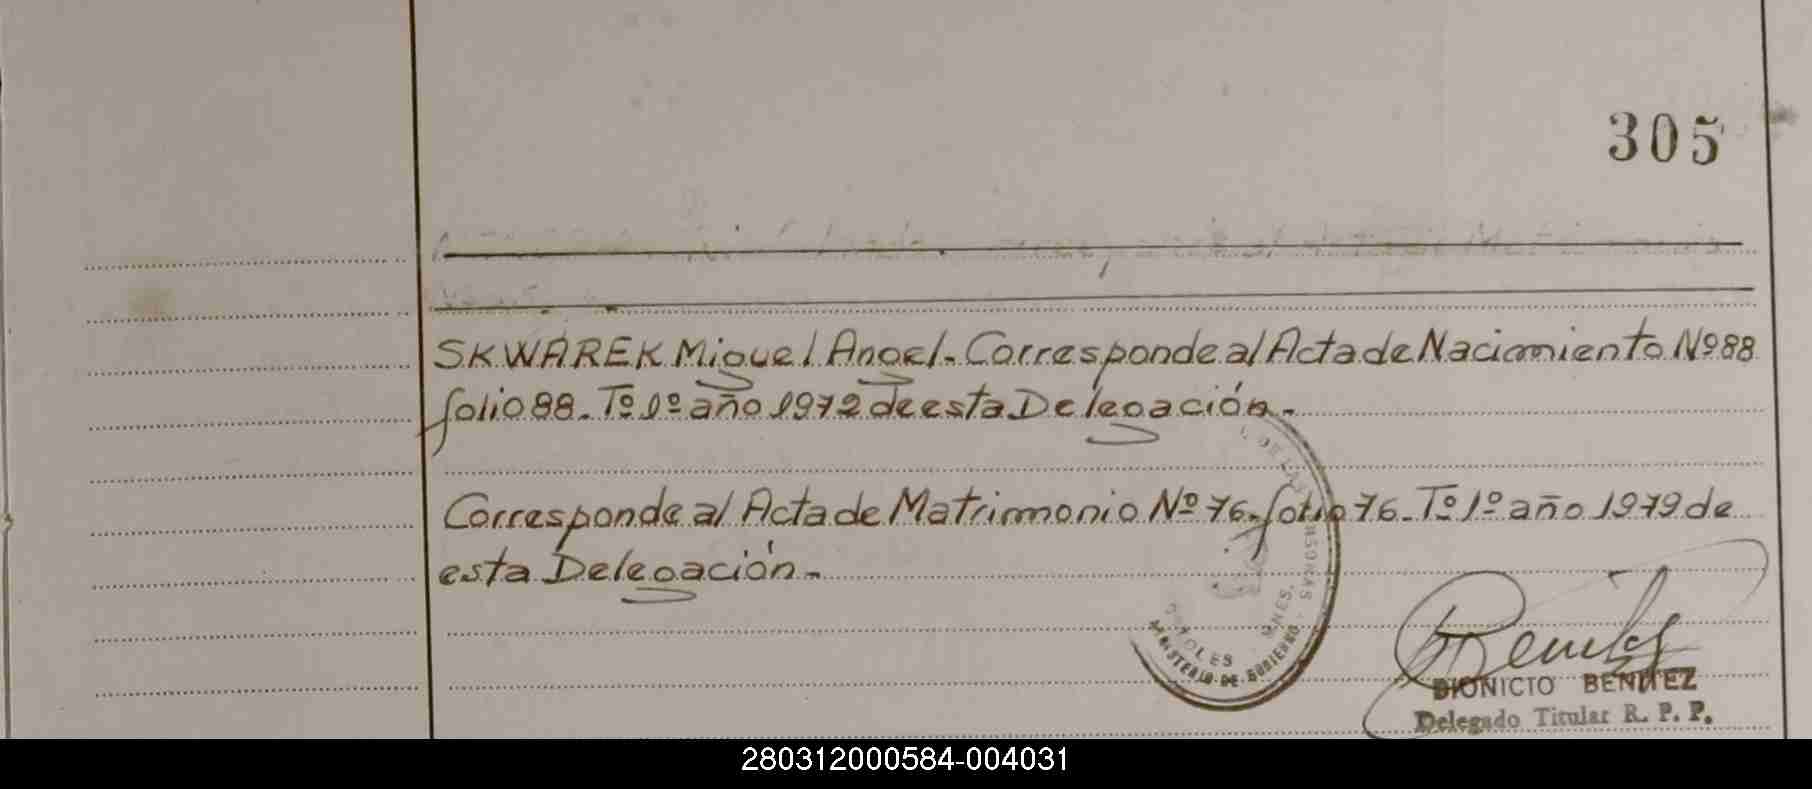 305
SKWAREK Miguel Angel. Corresponde al Acta de Nacimiento Nº 88
folio 88. Tº 1º año 1972 de esta Delegación.-
Corresponde al Acta de Matrimonio Nº 76. folio 76. Tº 1º año 1979 de
esta Delegación.-
MINISTERIO DE GOBIERNO
DIONICIO BENITEZ
Delegado Titular R. P. P.
280312000584-004031